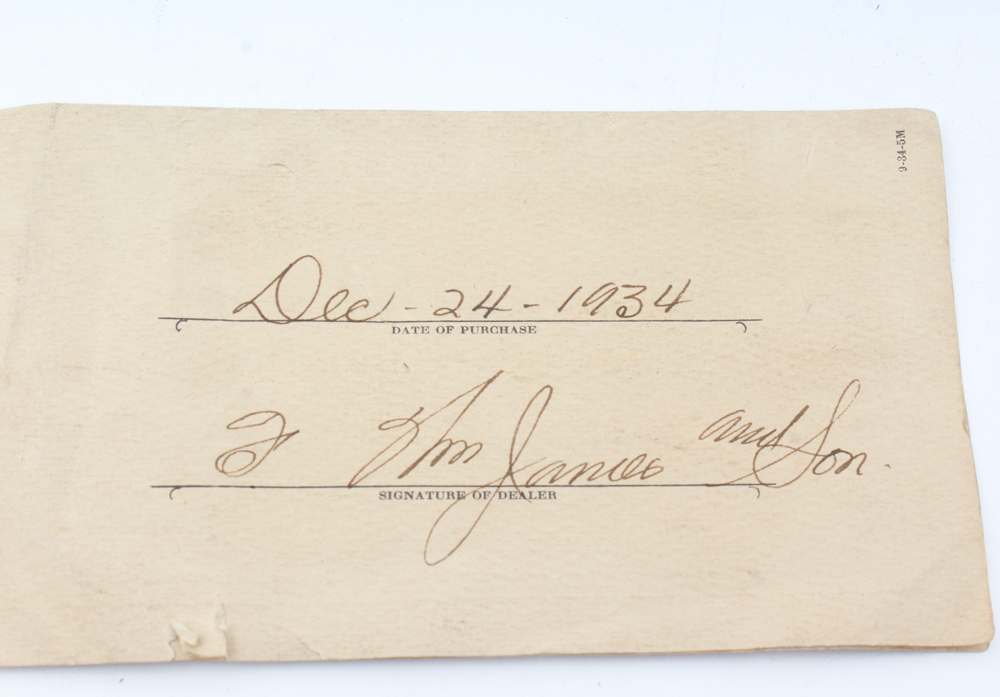 9-34-5M
Dec - 24 - 1934
DATE OF PURCHASE
F Wm James and Son.
SIGNATURE OF DEALER